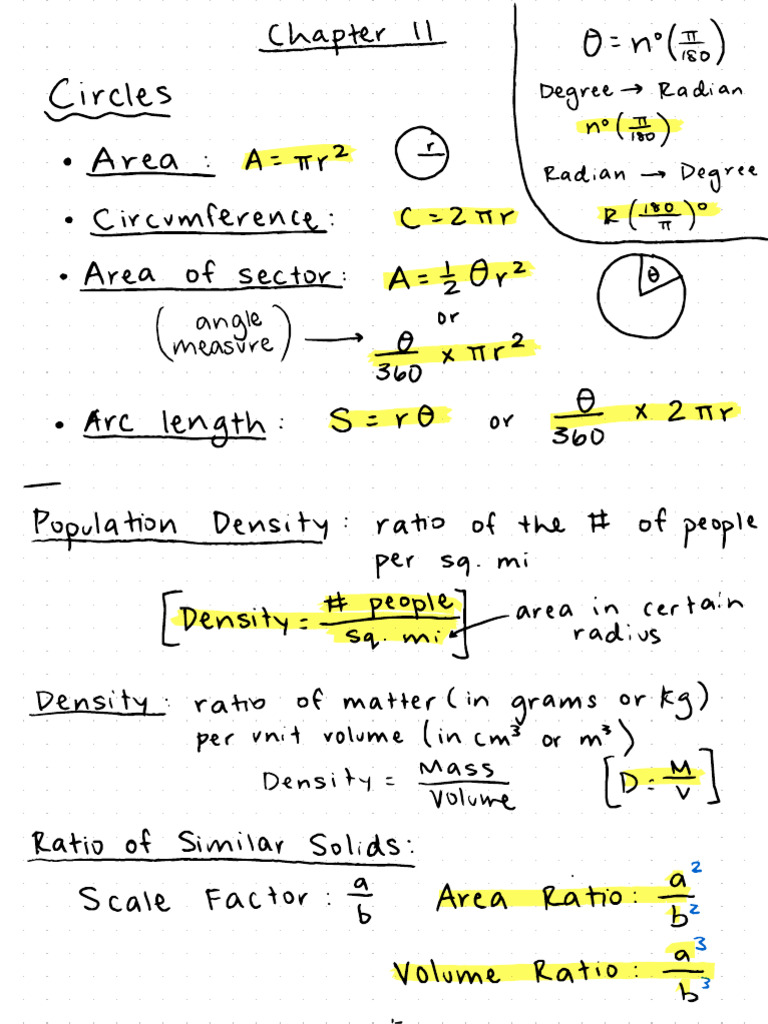 Chapter 11
θ = n°(π/180)
Degree → Radian
n°(π/180)
Radian → Degree
R(180/π)°
Circles
• Area: A = πr²
r
• Circumference: C = 2πr
• Area of sector: A = 1/2 θr²
θ
or
(angle measure) → θ/360 × πr²
• Arc length: S = rθ or θ/360 × 2πr
Population Density: ratio of the # of people
per sq. mi
[Density = # people/sq. mi] ← area in certain
radius
Density: ratio of matter (in grams or kg)
per unit volume (in cm³ or m³)
Density = Mass/Volume [D = M/V]
Ratio of Similar Solids:
Scale Factor: a/b Area Ratio: a²/b²
Volume Ratio: a³/b³